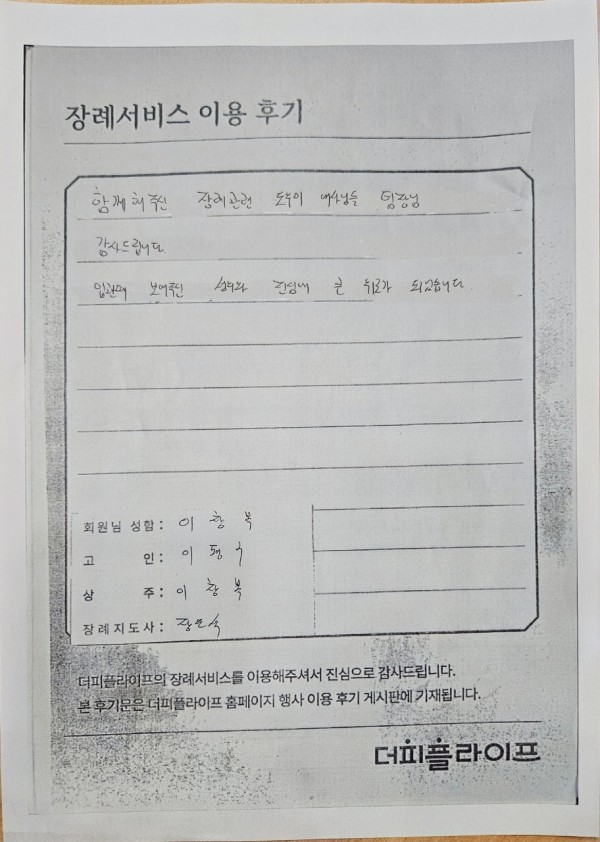 장례서비스 이용 후기
함께 해주신 장례관련 도우미 여사님들 팀장님
감사드립니다.
입관때 보여주신 성의와 진심에 큰 위로가 되었습니다.
회원님 성함: 이 창 복
고 인: 이
상 주: 이 창 복
장례지도사: 장
더피플라이프의 장례서비스를 이용해주셔서 진심으로 감사드립니다.
본 후기문은 더피플라이프 홈페이지 행사 이용 후기 게시판에 기재됩니다.
더피플라이프